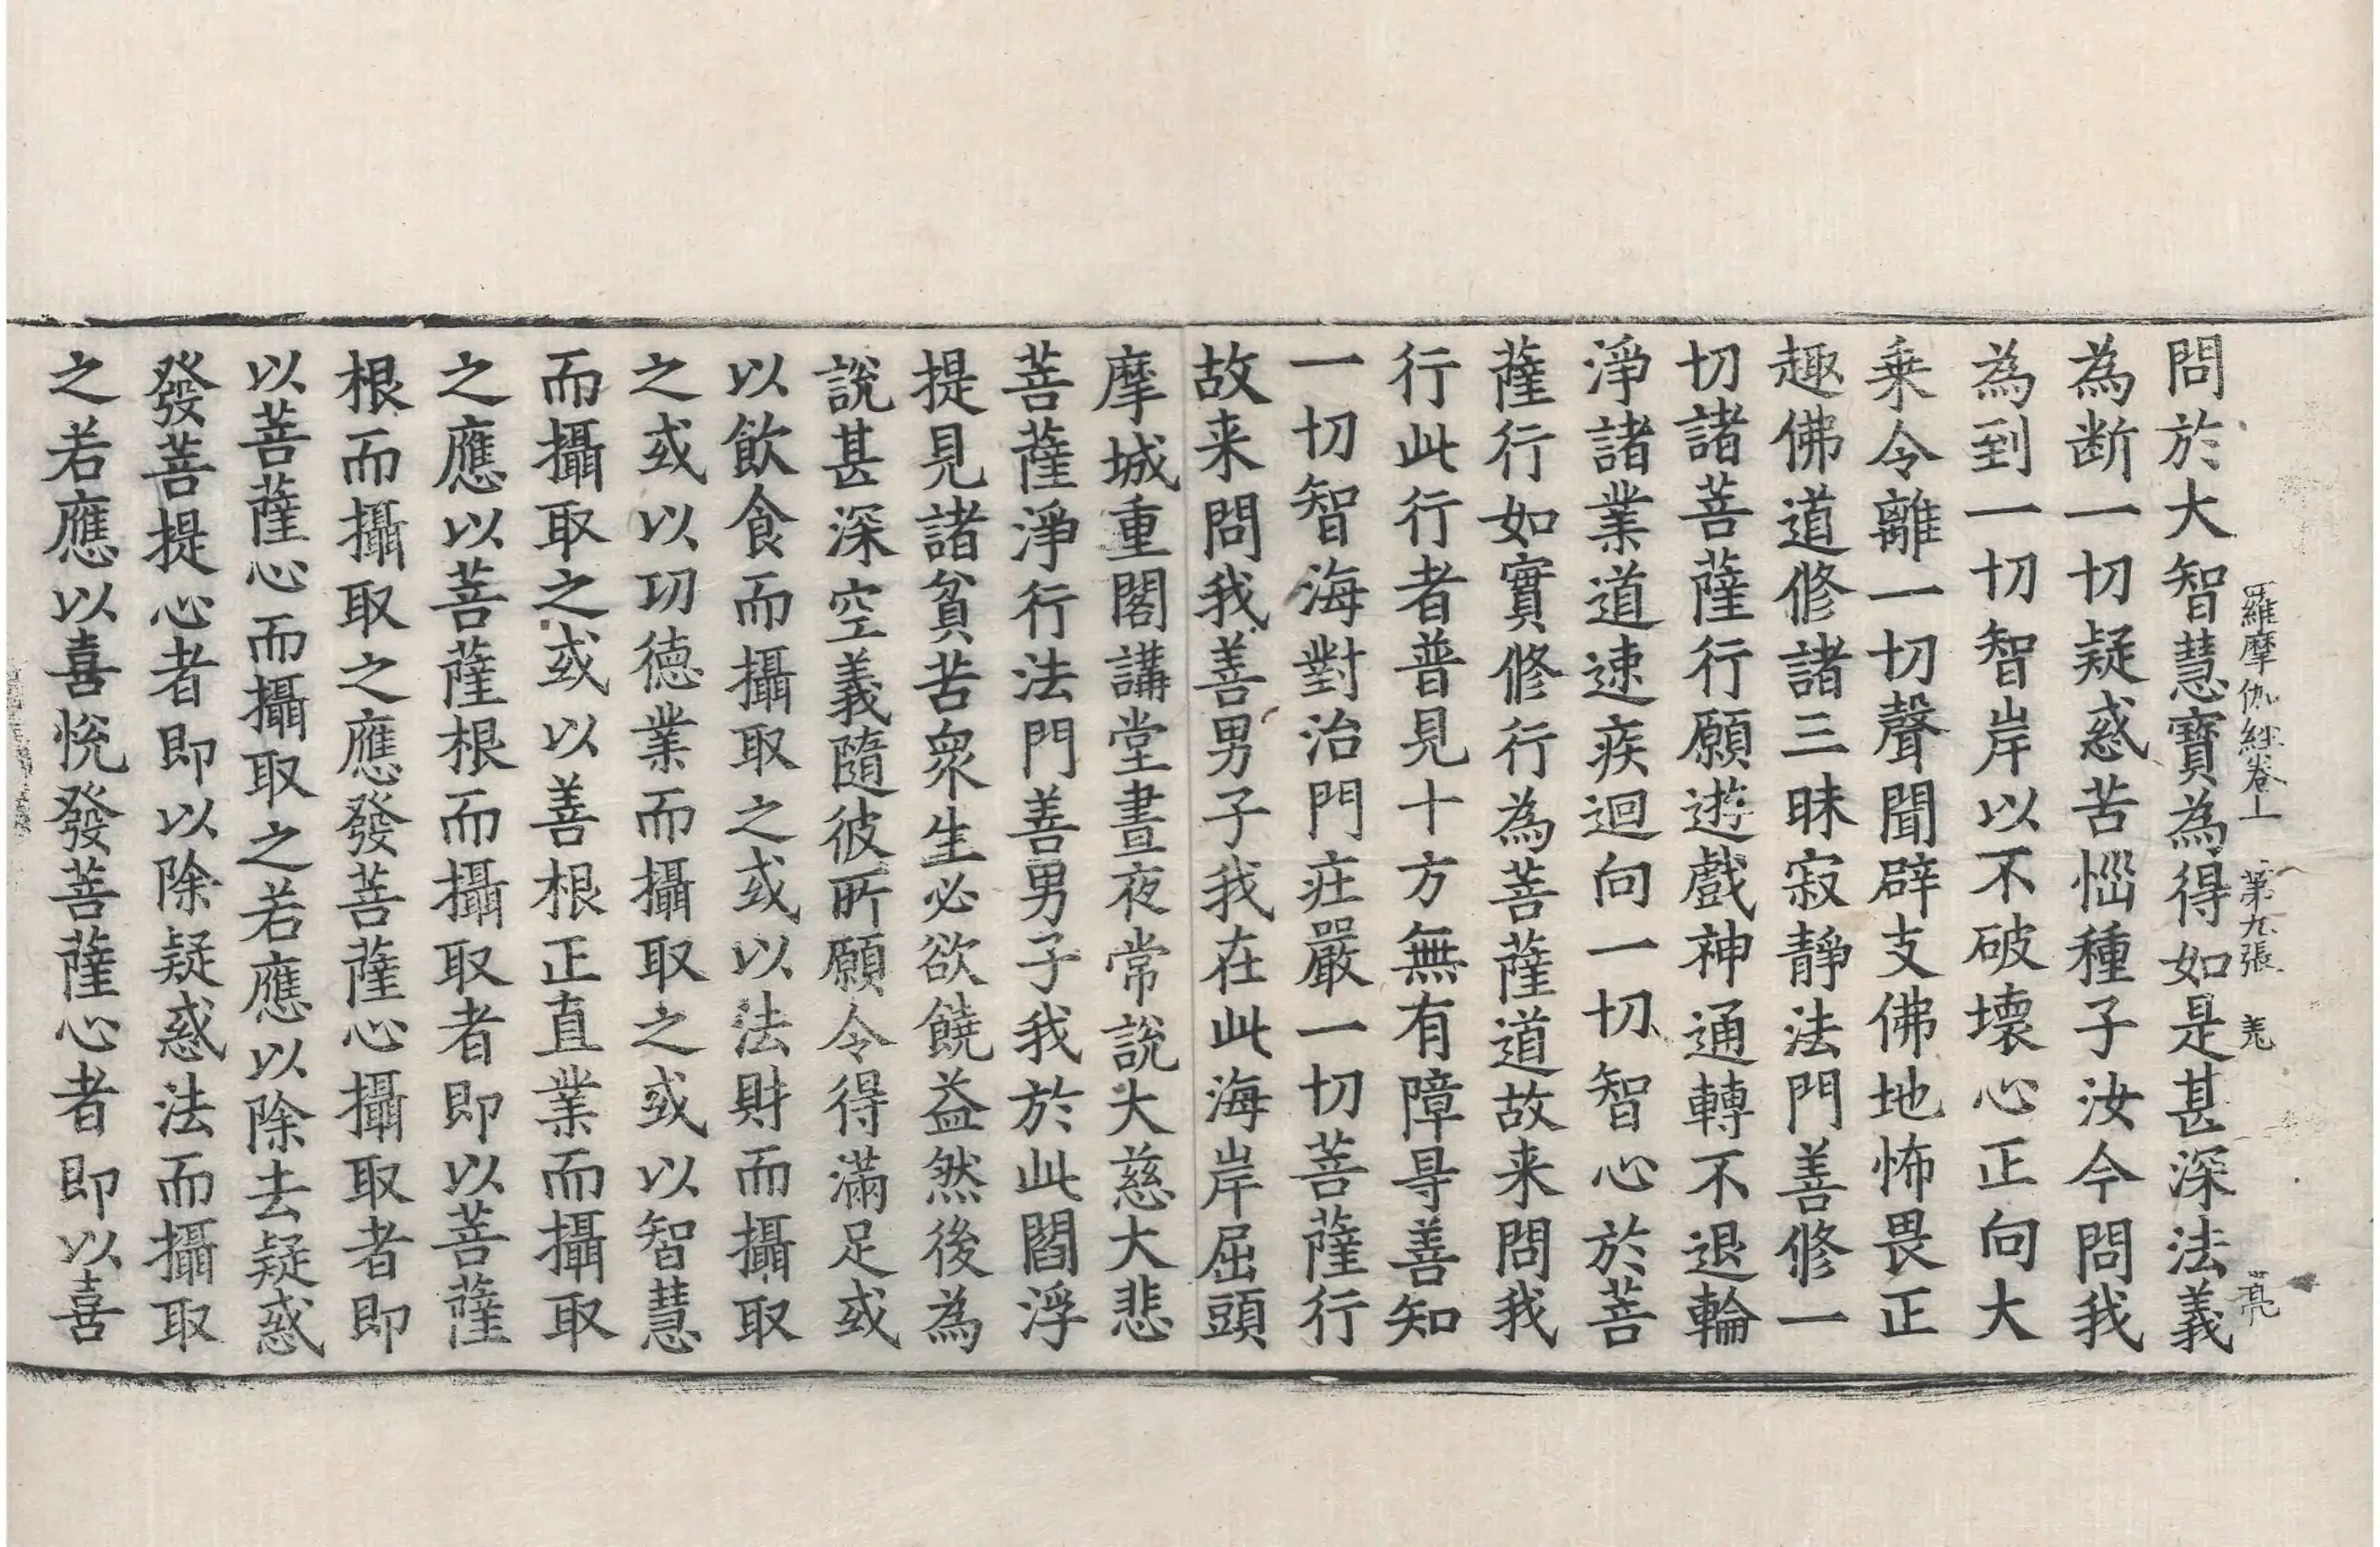 羅摩伽経卷上 第九張 羌 亮
問於大智慧寶為得如是甚深法義
為断一切疑惑苦惱種子汝今問我
為到一切智岸以不破壞心正向大
乗令離一切聲聞辟支佛地怖畏正
趣佛道修諸三昧寂靜法門善修一
切諸菩薩行願遊戲神通轉不退輪
淨諸業道速疾迴向一切智心於菩
薩行如實修行為菩薩道故来問我
行此行者普見十方無有障㝵善知
一切智海對治門疰嚴一切菩薩行
故来問我善男子我在此海岸屈頭
摩城重閣講堂晝夜常說大慈大悲
菩薩淨行法門善男子我於此閻浮
提見諸貧苦衆生必欲饒益然後為
說甚深空義隨彼所願令得滿足或
以飲食而攝取之或以法財而攝取
之或以功德業而攝取之或以智慧
而攝取之或以善根正直業而攝取
之應以菩薩根而攝取者即以菩薩
根而攝取之應發菩薩心攝取者即
以菩薩心而攝取之若應以除去疑惑
發菩提心者即以除疑惑法而攝取
之若應以喜悅發菩薩心者即以喜